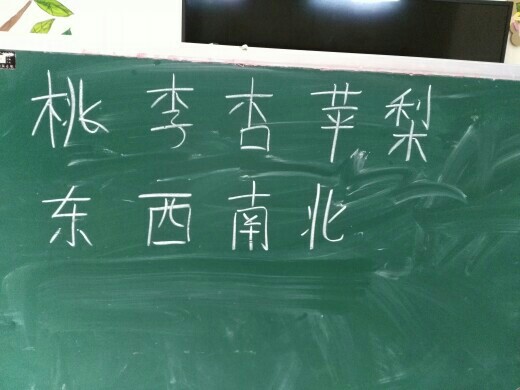 桃 李 杏 苹 梨
东 西 南 北